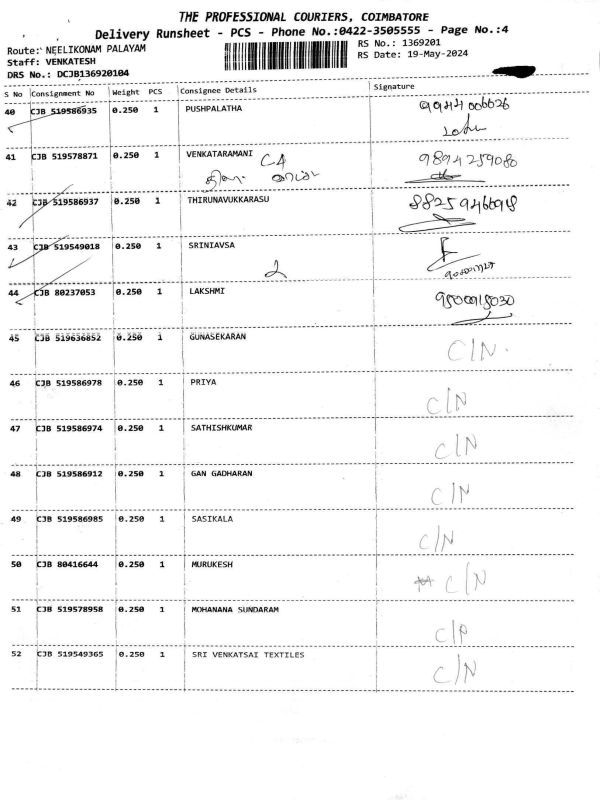 THE PROFESSIONAL COURIERS, COIMBATORE
Delivery Runsheet - PCS - Phone No.:0422-3505555 - Page No.:4
Route: NEELIKONAM PALAYAM
RS No.: 1369201
Staff: VENKATESH
RS Date: 19-May-2024
DRS No.: DCJB136920104
S No Consignment No Weight PCS Consignee Details Signature
40 CJB 519586935 0.250 1 PUSHPALATHA
41 CJB 519578871 0.250 1 VENKATARAMANI 9894259080
42 CJB 519586937 0.250 1 THIRUNAVUKKARASU
43 CJB 519549018 0.250 1 SRINIAVSA
44 CJB 80237053 0.250 1 LAKSHMI 9500915030
45 CJB 519636852 0.250 1 GUNASEKARAN C/N
46 CJB 519586978 0.250 1 PRIYA C/N
47 CJB 519586974 0.250 1 SATHISHKUMAR C/N
48 CJB 519586912 0.250 1 GAN GADHARAN C/N
49 CJB 519586985 0.250 1 SASIKALA C/N
50 CJB 80416644 0.250 1 MURUKESH C/N
51 CJB 519578958 0.250 1 MOHANANA SUNDARAM
52 CJB 519549365 0.250 1 SRI VENKATSAI TEXTILES C/N